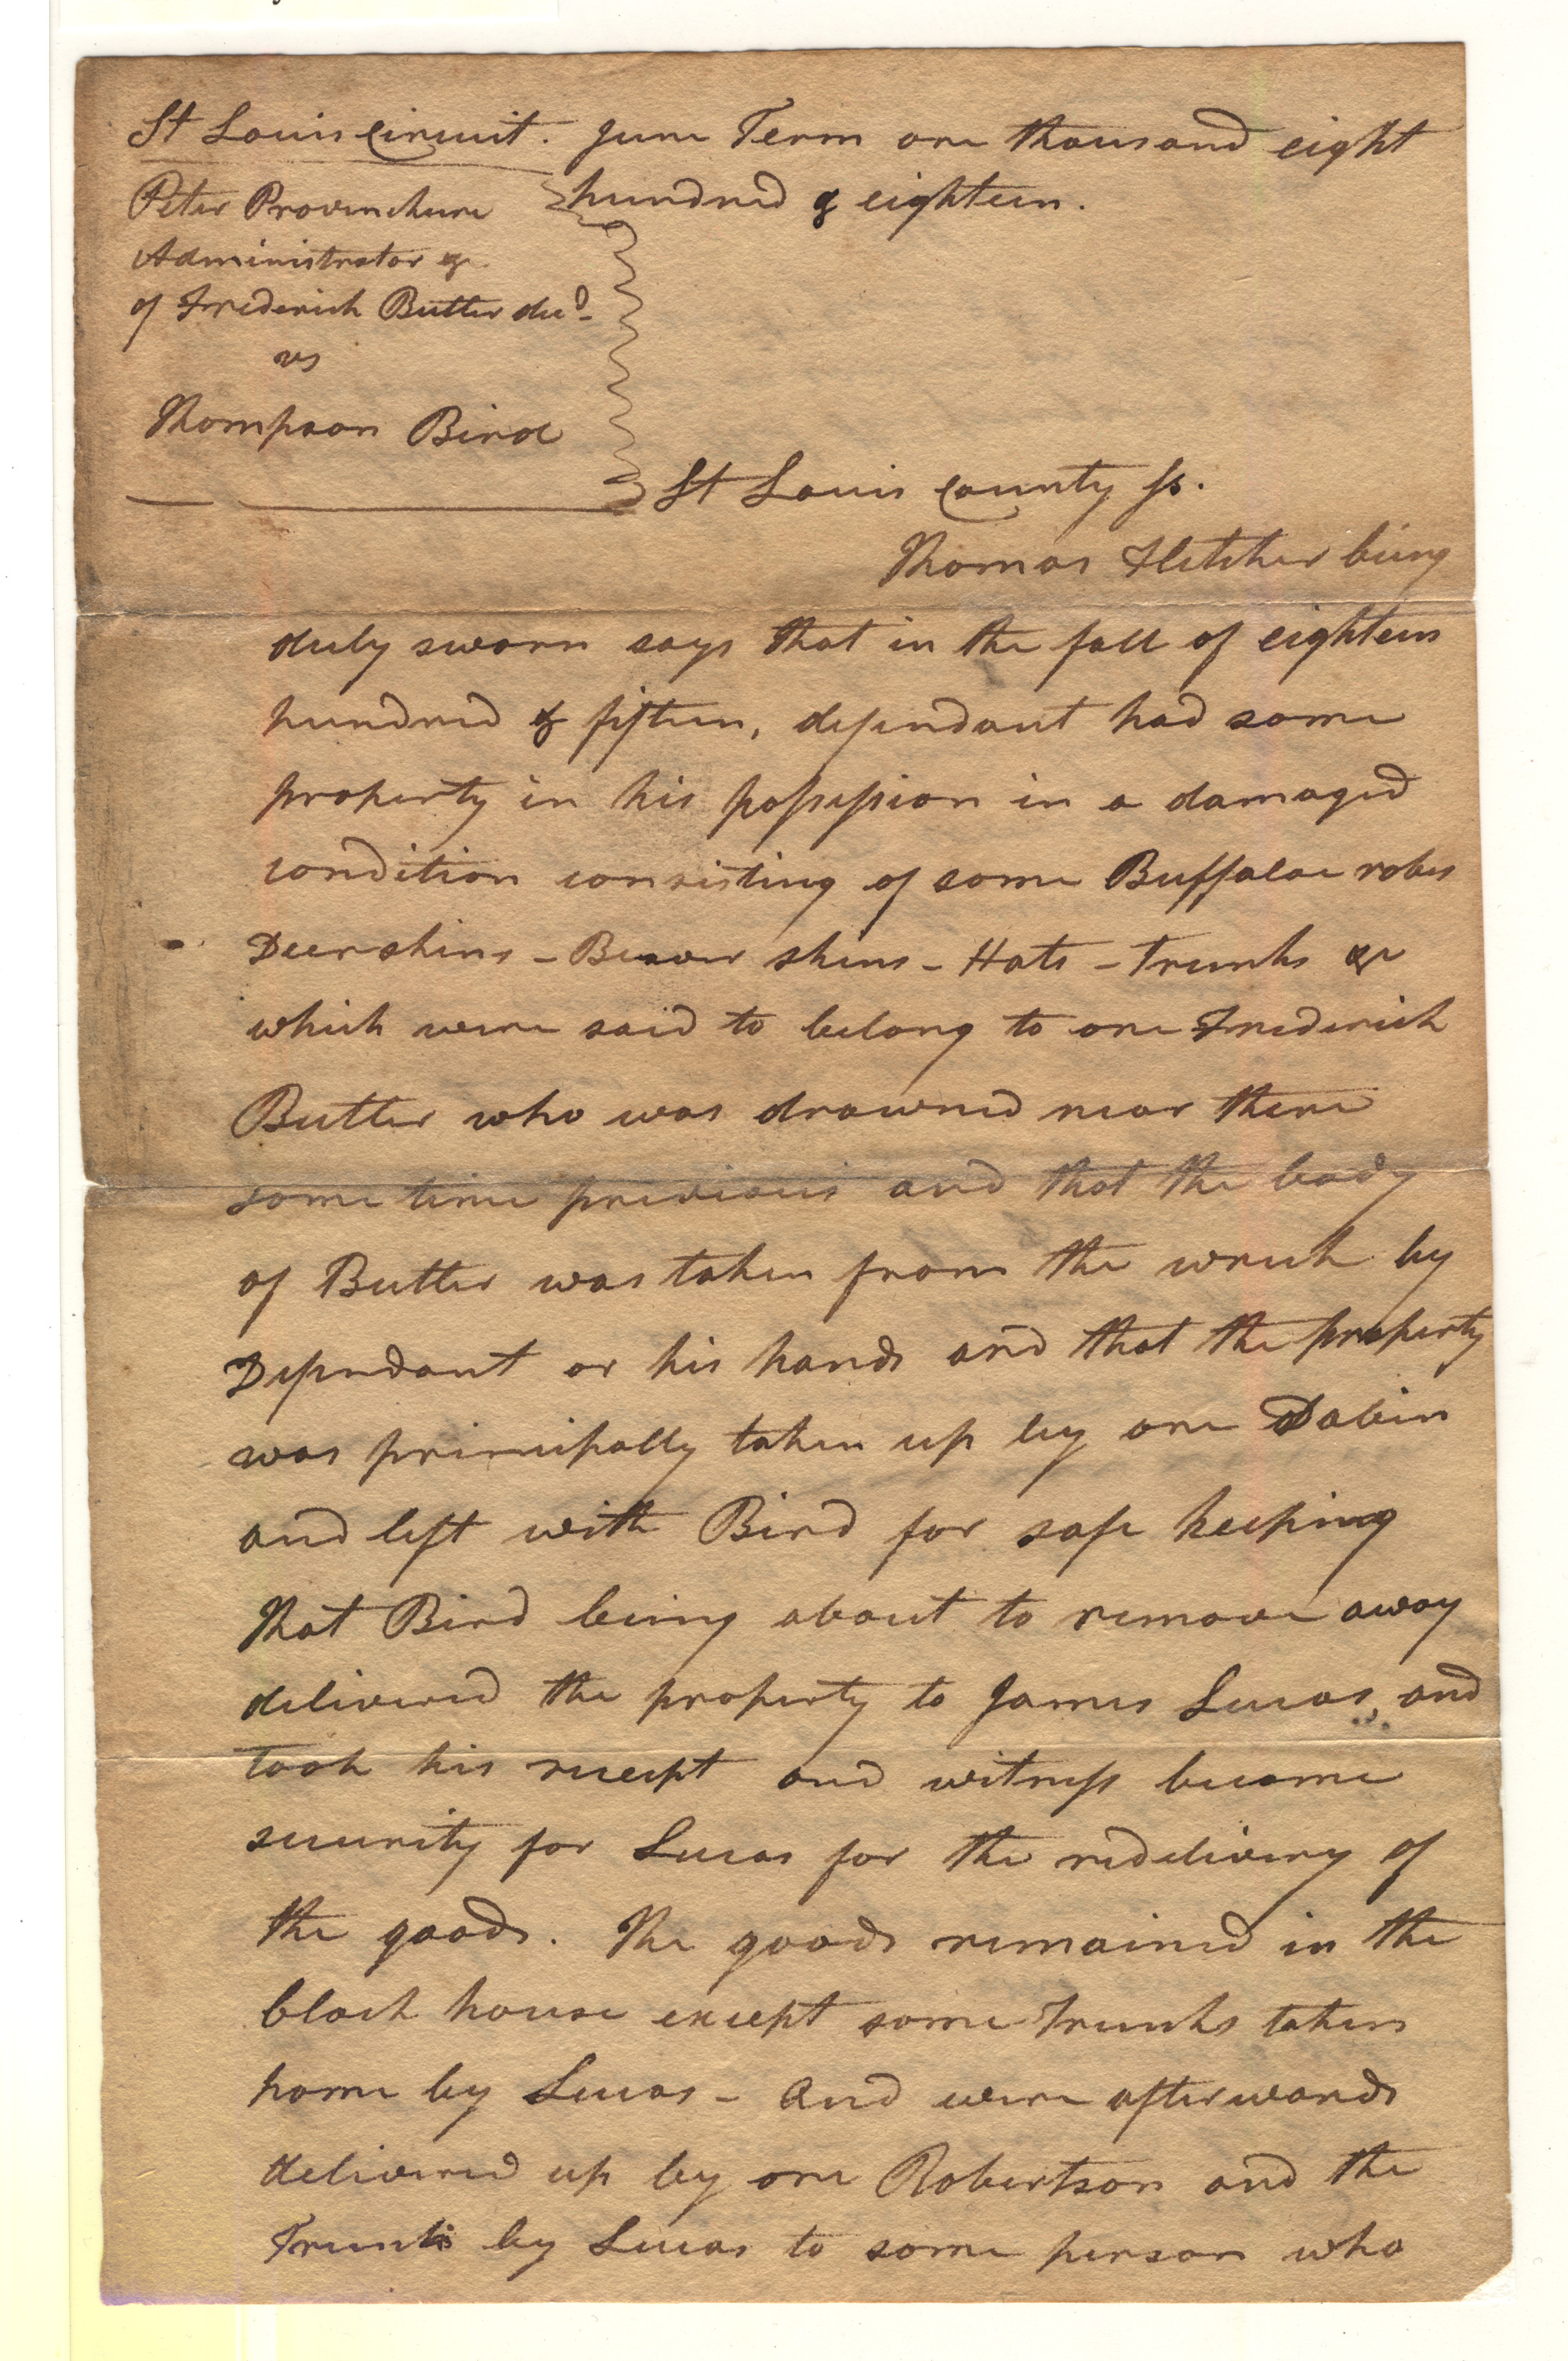 St Louis Circuit. June Term one thousand eight
hundred & eighteen.
Peter Provenchere
Administrator &c.
of Frederick Butler decd.
vs
Thompson Bird
St Louis County ss.
Thomas Fletcher being
duly sworn says that in the fall of eighteen
hundred & fifteen, defendant had some
property in his possession in a damaged
condition consisting of some Buffaloe robes
Deerskins - Beaver skins - Hats - Trunks &c
which were said to belong to one Frederick
Butler who was drowned near there
some time previous and that the body
of Butler was taken from the wreck by
Defendant or his hands and that the property
was principally taken up by one Dabin
and left with Bird for safe keeping
That Bird being about to remove away
delivered the property to James Lucas, and
took his receipt and witness became
security for Lucas for the redelivery of
the goods. The goods remained in the
block house except some Trunks taken
home by Lucas - and were afterwards
delivered up by one Robertson and the
Trunks by Lucas to some person who